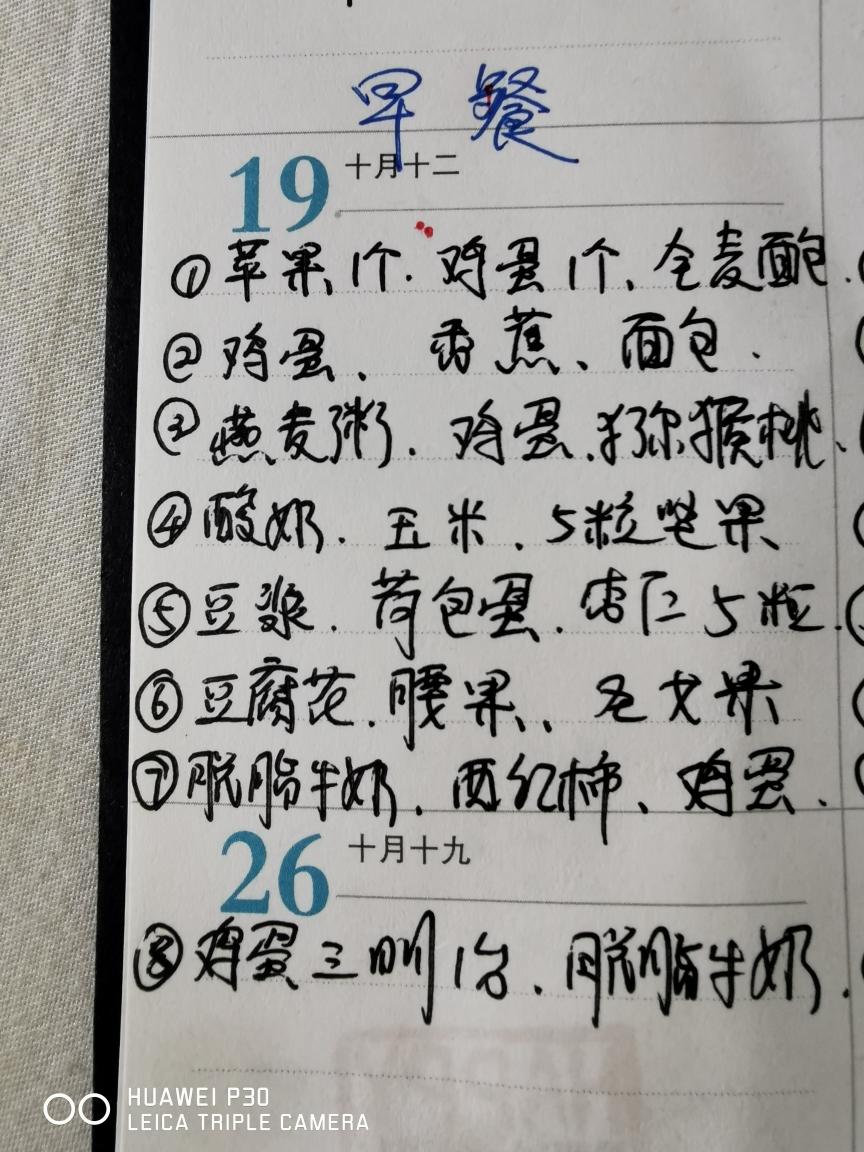 早餐
19 十月十二
①苹果1个.鸡蛋1个、全麦面包.
②鸡蛋、香蕉、面包.
③燕麦粥.鸡蛋.猕猴桃、
④酸奶.玉米.5粒坚果
⑤豆浆.荷包蛋.杏仁5粒.
⑥豆腐花.腰果、圣女果
⑦脱脂牛奶.西红柿、鸡蛋.
26 十月十九
⑧鸡蛋三明治.脱脂牛奶.
HUAWEI P30
LEICA TRIPLE CAMERA